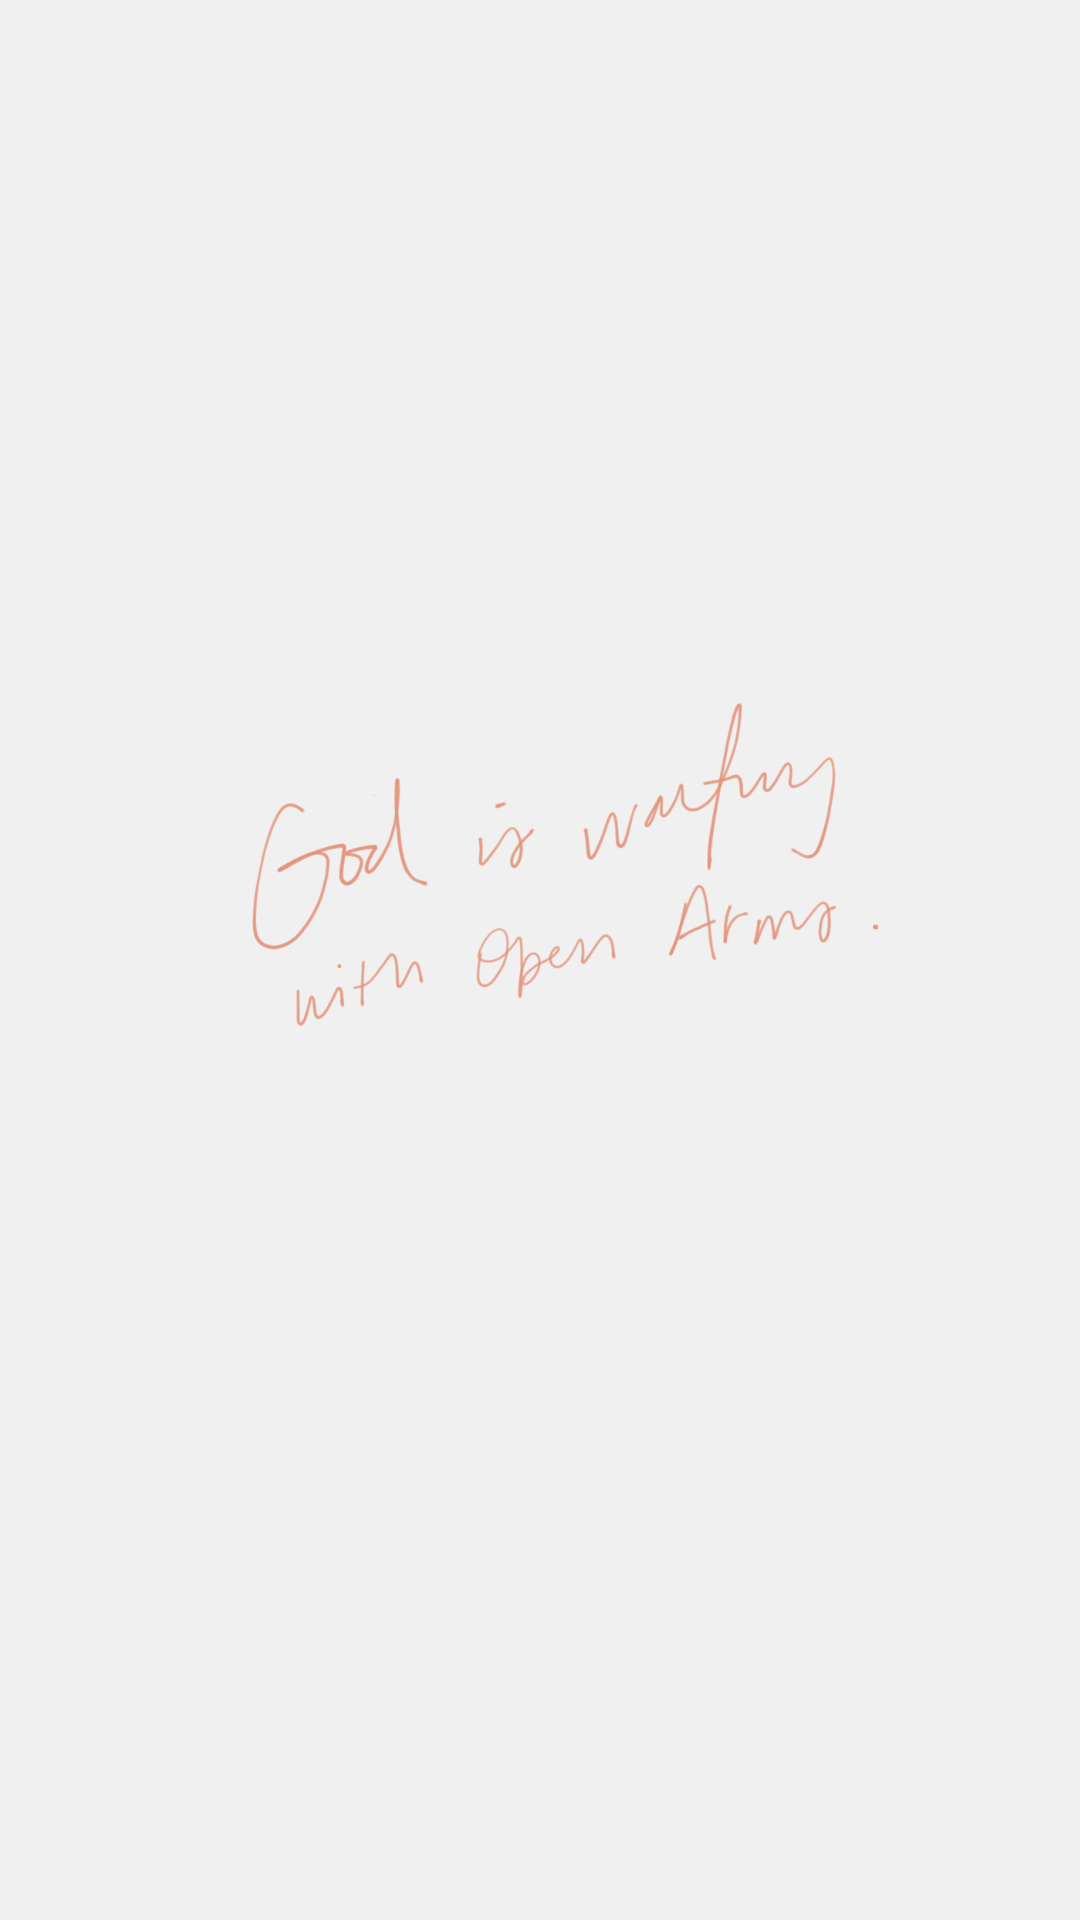 God is waiting
with Open Arms.